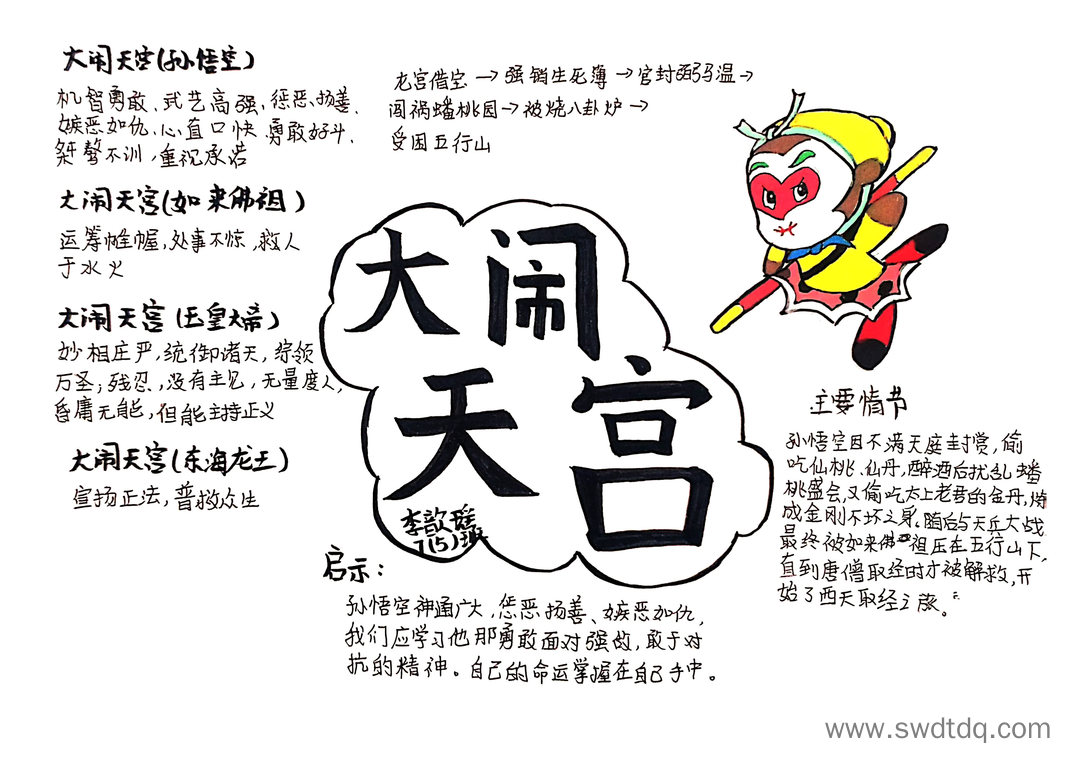 大闹天宫(孙悟空)
机智勇敢、武艺高强、惩恶、扬善、
嫉恶如仇、心直口快、勇敢好斗、
桀骜不训，重视承诺
大闹天宫(如来佛祖)
运筹帷幄，处事不惊，救人
于水火
大闹天宫(玉皇大帝)
妙相庄严，统御诸天，综领
万圣；残忍，没有主见，无量度人，
昏庸无能，但能主持正义
大闹天宫(东海龙王)
宣扬正法，普救众生
龙宫借宝→强销生死薄→官封弼马温→
闯祸蟠桃园→被烧八卦炉→
受困五行山
大闹
天宫
李歆瑶
7(5)班
主要情节
孙悟空因不满天庭封赏，偷
吃仙桃、仙丹，醉酒后扰乱蟠
桃盛会，又偷吃太上老君的金丹，炼
成金刚不坏之身。随后与天兵大战
最终被如来佛祖压在五行山下，
直到唐僧取经时才被解救，开
始了西天取经之旅。
启示：
孙悟空神通广大，惩恶扬善、嫉恶如仇，
我们应学习他那勇敢面对强敌，敢于对
抗的精神。自己的命运掌握在自己手中。
www.swdtdq.com